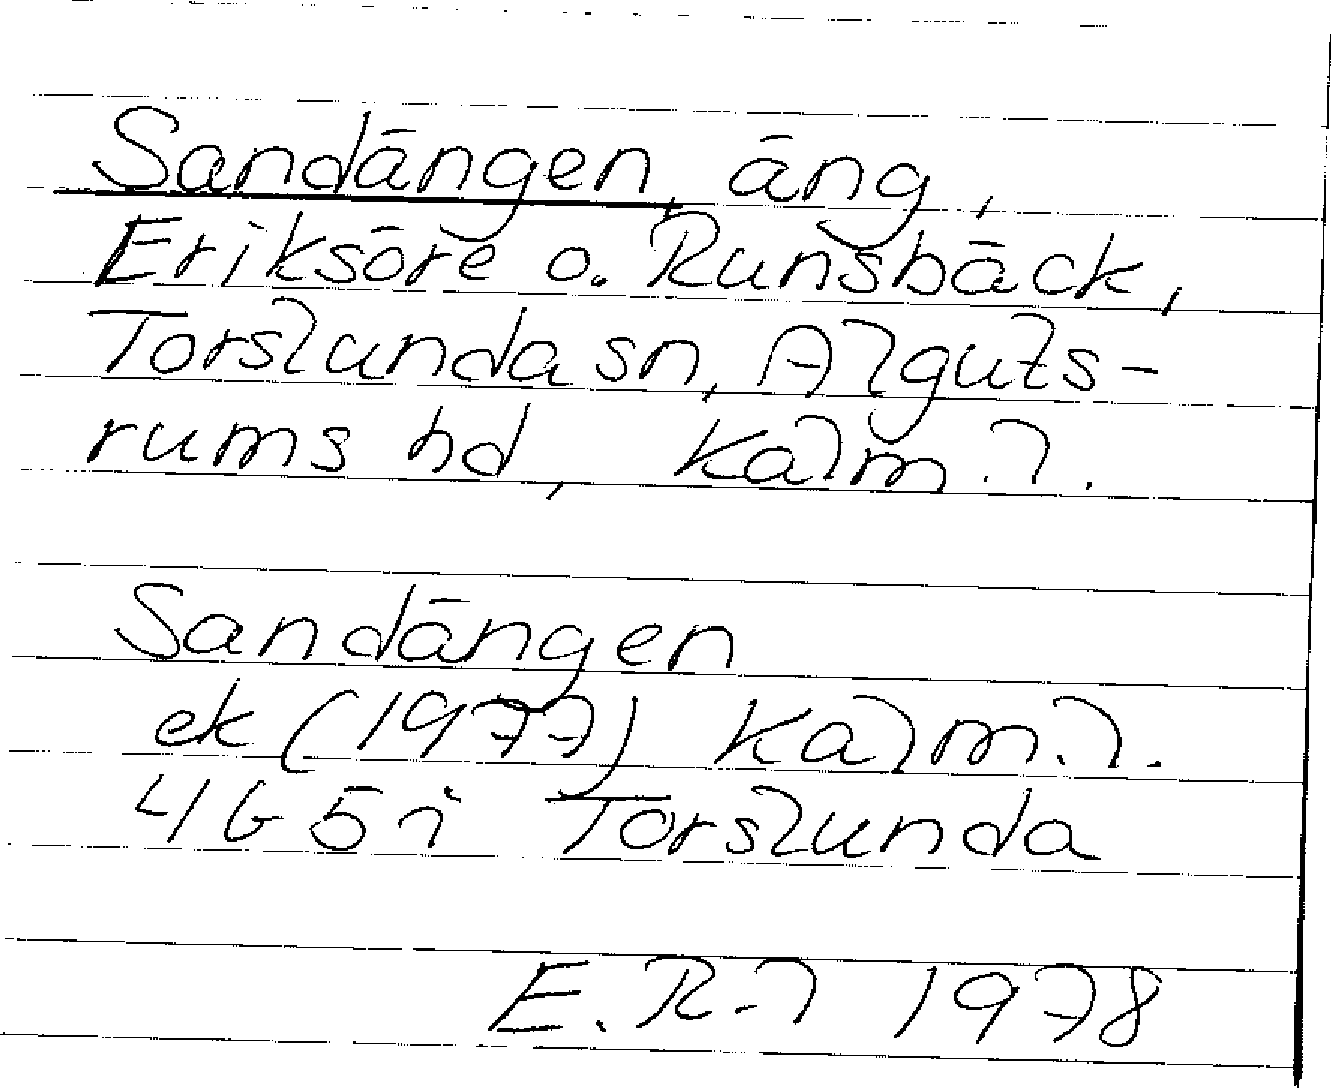 Sandängen, äng,
Eriksöre o. Runsbäck,
Torslunda sn, Alguts-
rums hd, Kalm. l.
Sandängen
ek (1977) Kalm. l.
4G5i Torslunda
E. R-l 1978